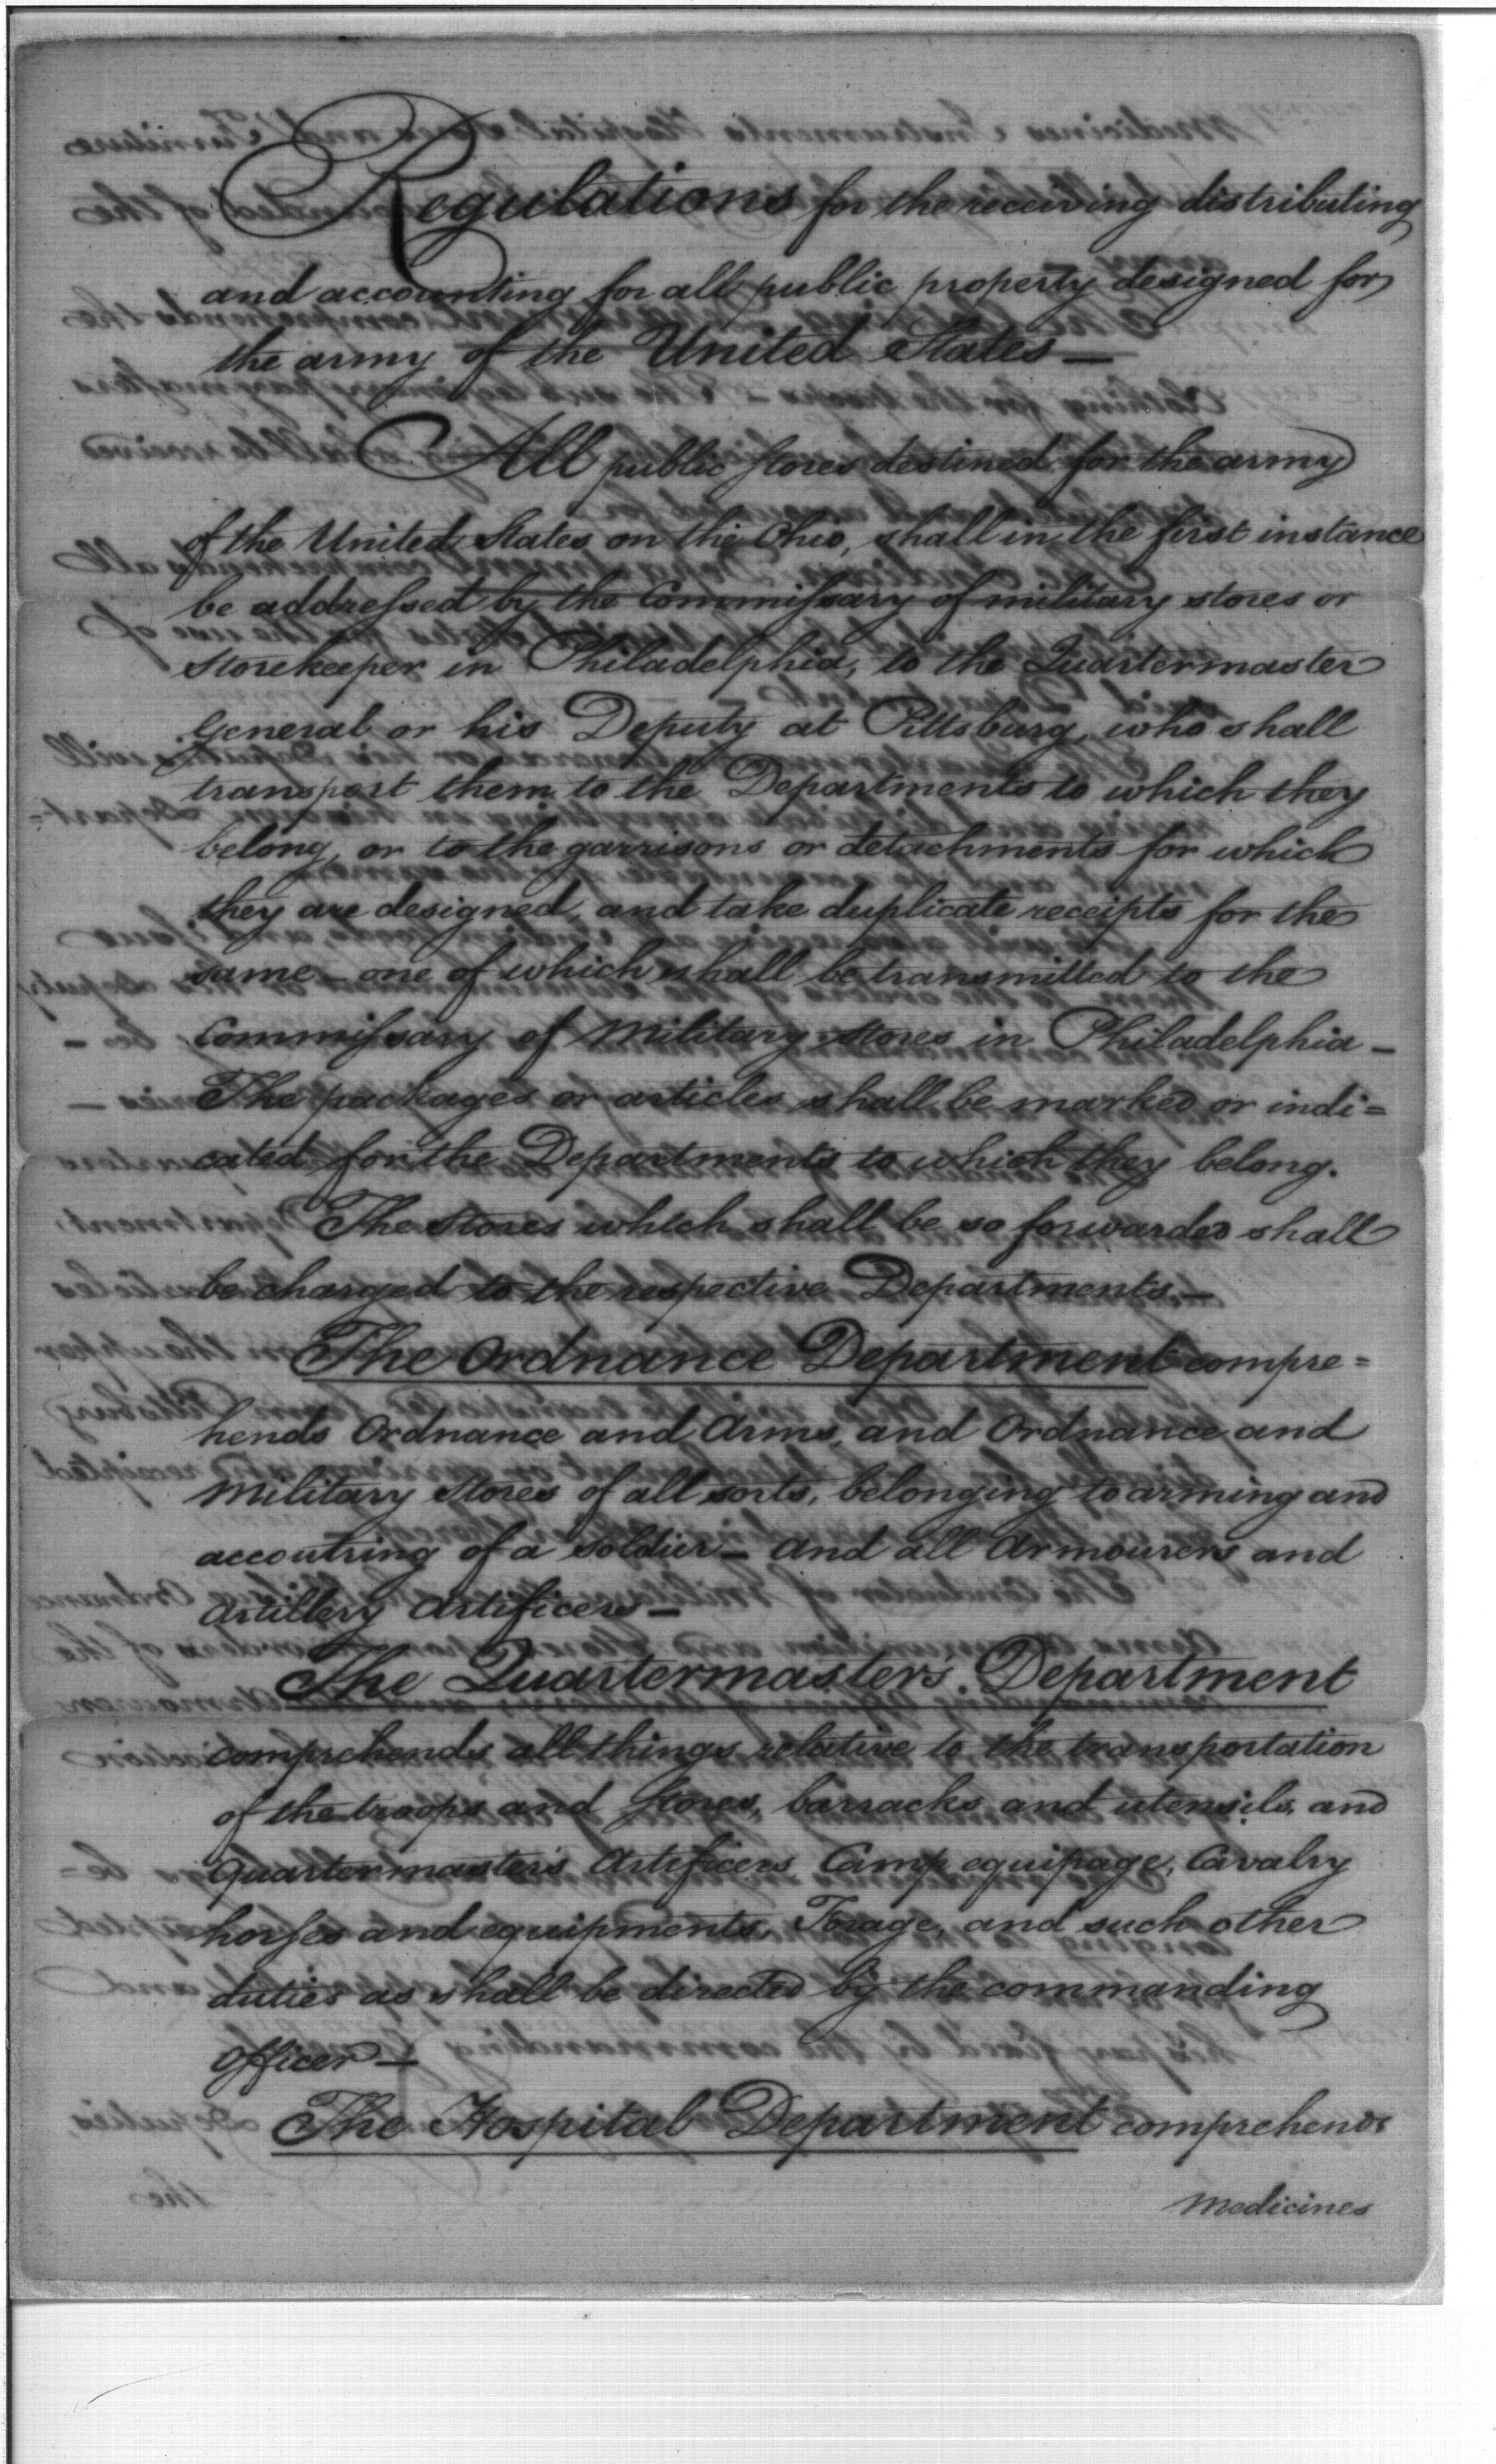 Regulations for the receiving distributing
and accounting for all public property designed for
the army of the United States—
All public stores destined for the army
of the United States on the Ohio, shall in the first instance
be addressed by the Commissary of military stores or
Storekeeper in Philadelphia, to the Quartermaster
General or his Deputy at Pittsburg, who shall
transport them to the Departments to which they
belong, or to the garrisons or detachments for which
they are designed, and take duplicate receipts for the
same— one of which shall be transmitted to the
Commissary of Military Stores in Philadelphia—
The packages or articles shall be marked or indi=
cated for the Departments to which they belong.
The Stores which shall be so forwarded shall
be charged to the respective Departments—
The Ordnance Department compre=
hends Ordnance and Arms, and Ordnance and
Military Stores of all sorts, belonging to arming and
accoutring of a Soldier— And all Armourers and
Artillery Artificers—
The Quartermaster's Department
comprehends all things relative to the transportation
of the troops and stores, barracks and utensils, and
Quartermaster's Artificers, Camp equipage, Cavalry
horses and equipments, Forage, and such other
duties as shall be directed by the commanding
officer—
The Hospital Department comprehends
Medicines